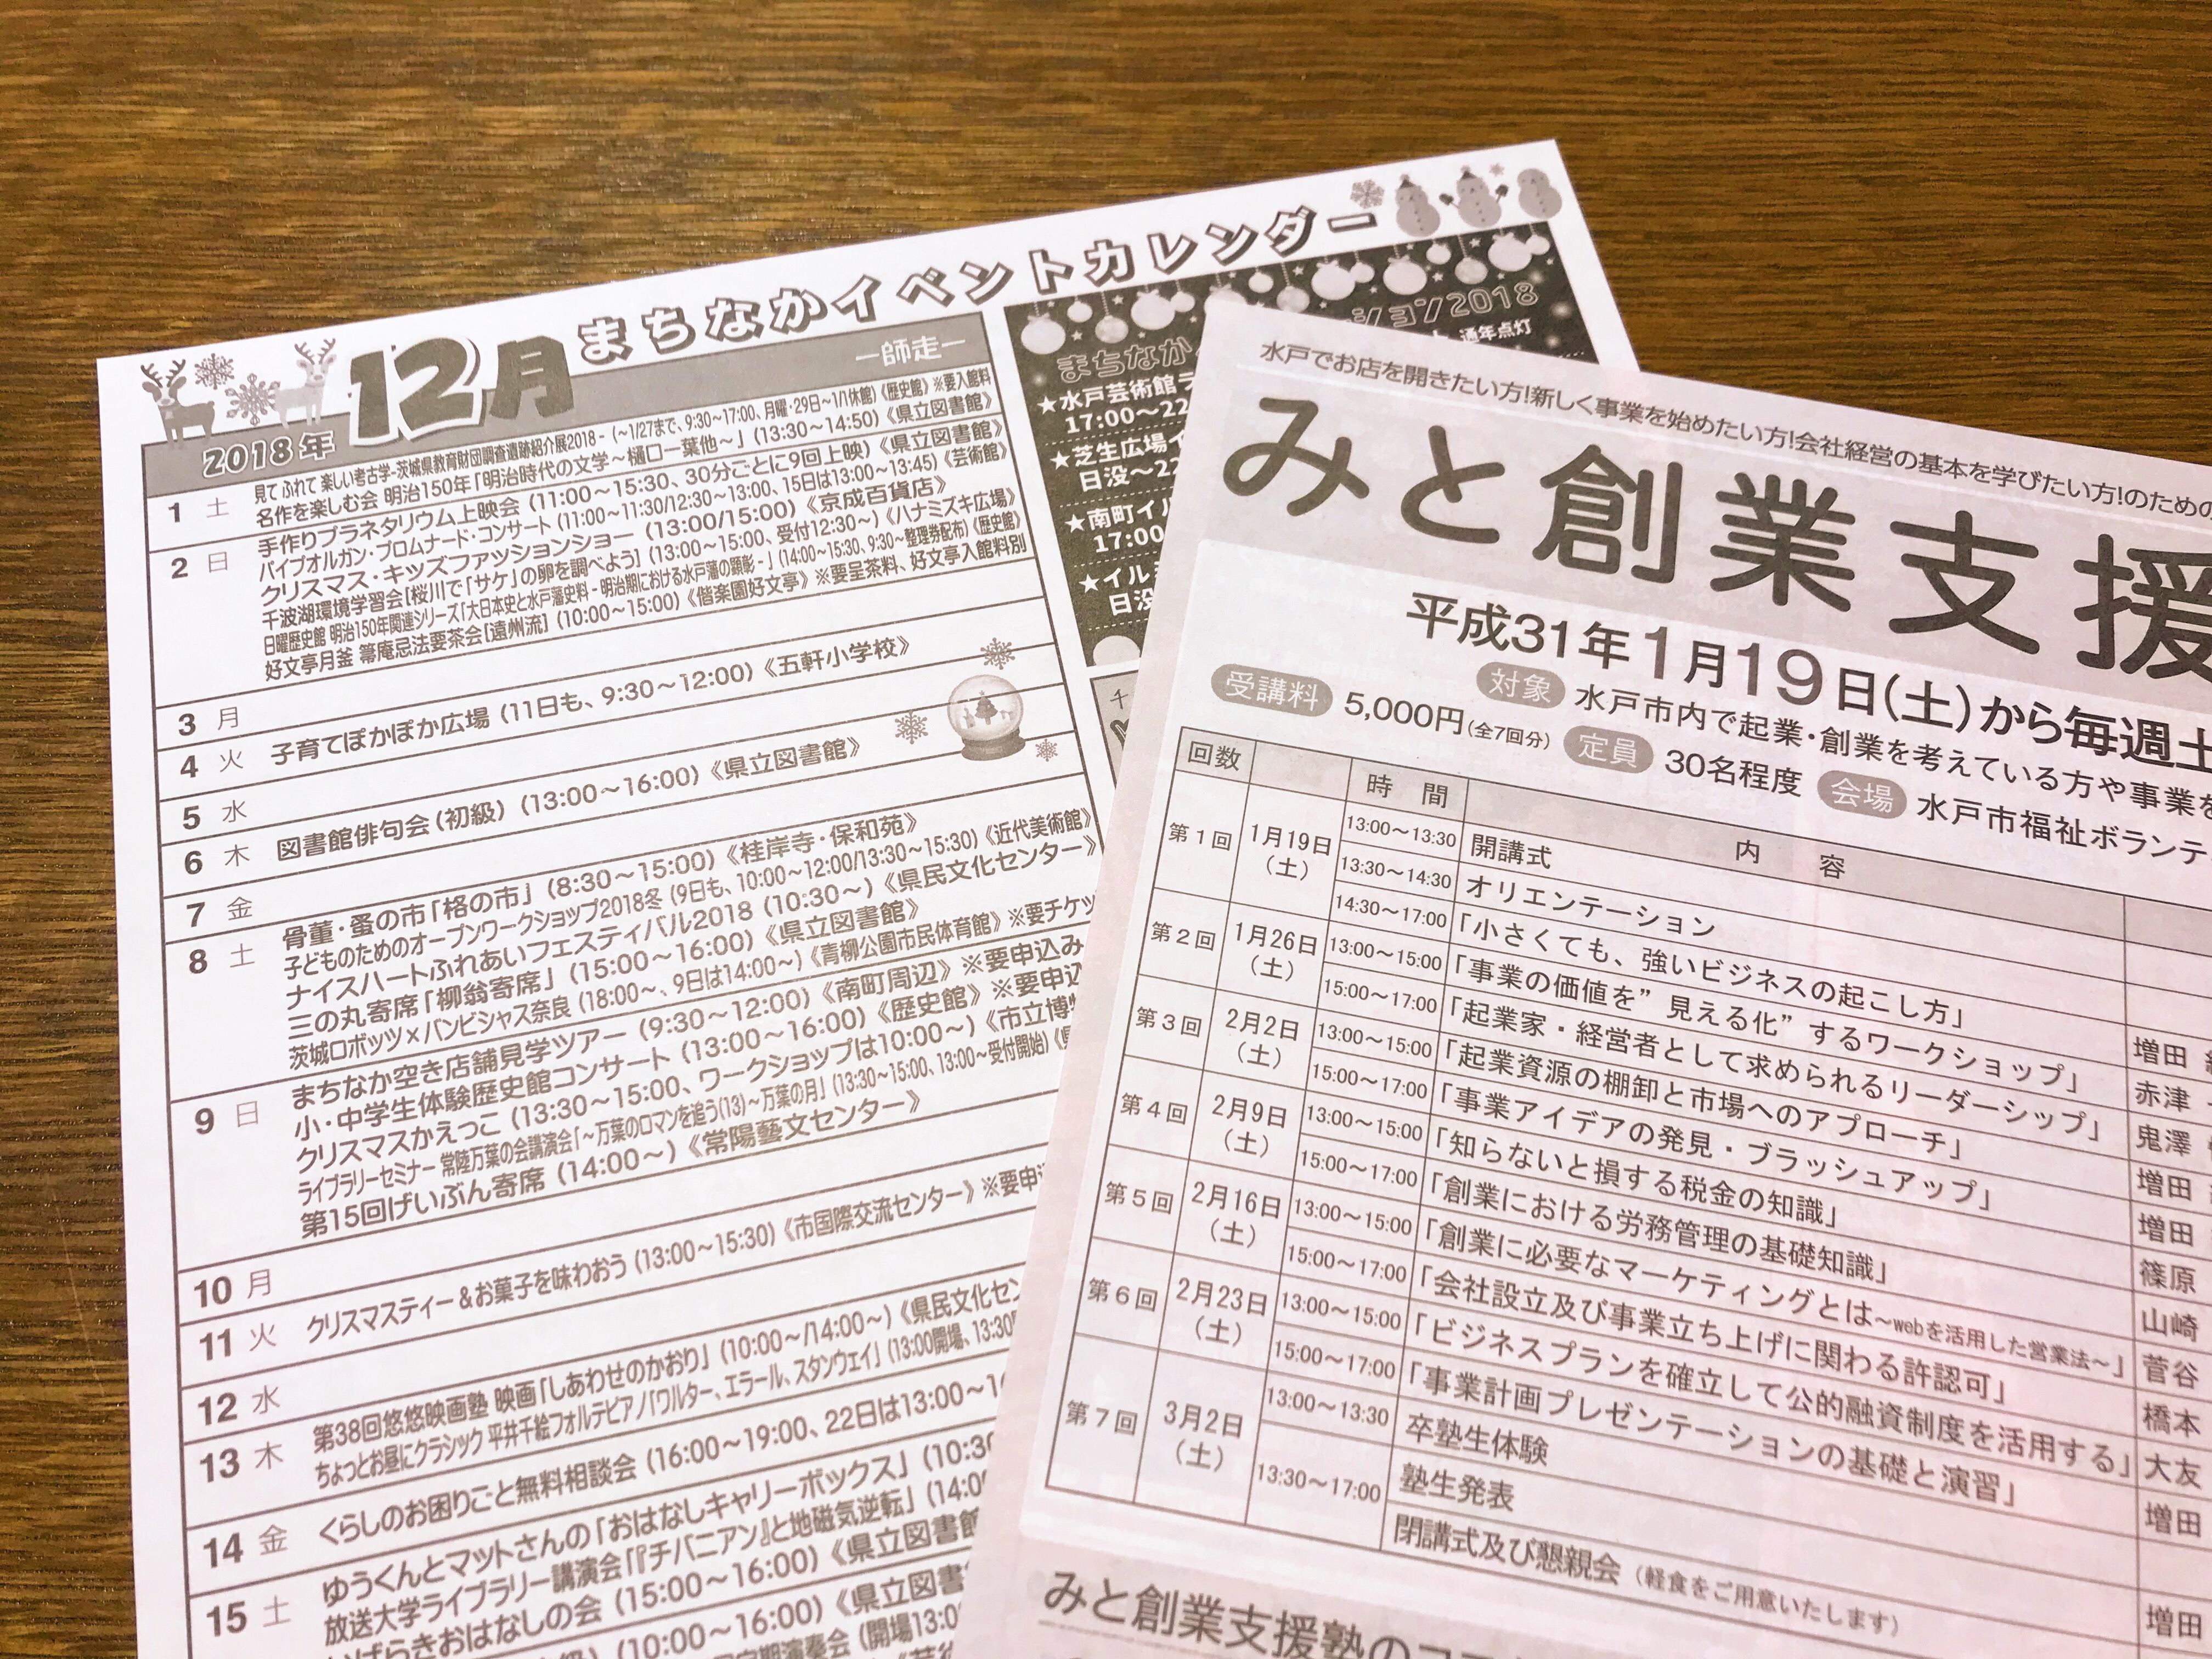 12月 まちなかイベントカレンダー
2018年
―師走―
見て ふれて 楽しい考古学-茨城県教育財団調査遺跡紹介展2018-（～1/27まで、9:30～17:00、月曜・29日～1/1休館）《歴史館》※要入館料
1 土 名作を楽しむ会 明治150年「明治時代の文学～樋口一葉他～」（13:30～14:50）《県立図書館》
手作りプラネタリウム上映会（11:00～15:30、30分ごとに9回上映）《県立図書館》
パイプオルガン・プロムナード・コンサート（11:00～11:30/12:30～13:00、15日は13:00～13:45）《芸術館》
2 日 クリスマス・キッズファッションショー（13:00/15:00）《京成百貨店》
千波湖環境学習会［桜川で「サケ」の卵を調べよう］（13:00～15:00、受付12:30～）《ハナミズキ広場》
日曜歴史館 明治150年関連シリーズ「大日本史と水戸藩史料-明治期における水戸藩の顕彰-」（14:00～15:30、9:30～整理券配布）《歴史館》
好文亭月釜 箒庵忌法要茶会［遠州流］（10:00～15:00）《偕楽園好文亭》※要呈茶料、好文亭入館料別
3 月
4 火 子育てぽかぽか広場（11日も、9:30～12:00）《五軒小学校》
5 水
6 木 図書館俳句会（初級）（13:00～16:00）《県立図書館》
7 金
8 土 骨董・蚤の市「格の市」（8:30～15:00）《桂岸寺・保和苑》
子どものためのオープンワークショップ2018冬（9日も、10:00～12:00/13:30～15:30）《近代美術館》
ナイスハートふれあいフェスティバル2018（10:30～）《県民文化センター》
三の丸寄席「柳翁寄席」（15:00～16:00）《県立図書館》
茨城ロボッツ×バンビシャス奈良（18:00～、9日は14:00～）《青柳公園市民体育館》※要チケッ
9 日 まちなか空き店舗見学ツアー（9:30～12:00）《南町周辺》※要申込み
小・中学生体験歴史館コンサート（13:00～16:00）《歴史館》※要申込
クリスマスかえっこ（13:30～15:00、ワークショップは10:00～）《市立博
ライブラリーセミナー 常陸万葉の会講演会「～万葉のロマンを追う(13)～万葉の月」（13:30～15:00、13:00～受付開始）《県
第15回げいぶん寄席（14:00～）《常陽藝文センター》
10 月
11 火 クリスマスティー＆お菓子を味わおう（13:00～15:30）《市国際交流センター》※要申
12 水
13 木 第38回悠悠映画塾 映画「しあわせのかおり」（10:00～/14:00～）《県民文化セン
ちょっとお昼にクラシック 平井千絵フォルテピアノ「ワルター、エラール、スタンウェイ」（13:00開場、13:30
14 金 くらしのお困りごと無料相談会（16:00～19:00、22日は13:00～16
15 土 ゆうくんとマットさんの「おはなしキャリーボックス」（10:30
放送大学ライブラリー講演会「『チバニアン』と地磁気逆転」（14:00
いばらきおはなしの会（15:00～16:00）《県立図書館
（10:00～16:00）《県立図書
定期演奏会（開場13:0
まちなか
ション2018
通年点灯
★水戸芸術館
17:00～22
★芝生広場
日没～22
★南町イル
17:00
★イル
日没
水戸でお店を開きたい方！新しく事業を始めたい方！会社経営の基本を学びたい方！のための
みと創業支援
平成31年1月19日（土）から毎週土
対象 水戸市内で起業・創業を考えている方や事業を
受講料 5,000円（全7回分） 定員 30名程度 会場 水戸市福祉ボランテ
回数 時間 内容
第1回 1月19日（土） 13:00～13:30 開講式
13:30～14:30 オリエンテーション
14:30～17:00 「小さくても、強いビジネスの起こし方」
第2回 1月26日（土） 13:00～15:00 「事業の価値を”見える化”するワークショップ」 増田
15:00～17:00 「起業家・経営者として求められるリーダーシップ」 赤津
第3回 2月2日（土） 13:00～15:00 「起業資源の棚卸と市場へのアプローチ」 鬼澤
15:00～17:00 「事業アイデアの発見・ブラッシュアップ」 増田
第4回 2月9日（土） 13:00～15:00 「知らないと損する税金の知識」 増田
15:00～17:00 「創業における労務管理の基礎知識」 篠原
第5回 2月16日（土） 13:00～15:00 「創業に必要なマーケティングとは～webを活用した営業法～」 山崎
15:00～17:00 「会社設立及び事業立ち上げに関わる許認可」 菅谷
第6回 2月23日（土） 13:00～15:00 「ビジネスプランを確立して公的融資制度を活用する」 橋本
15:00～17:00 「事業計画プレゼンテーションの基礎と演習」 大友
第7回 3月2日（土） 13:00～13:30 卒塾生体験 増田
13:30～17:00 塾生発表
閉講式及び懇親会（軽食をご用意いたします） 増田
みと創業支援塾の